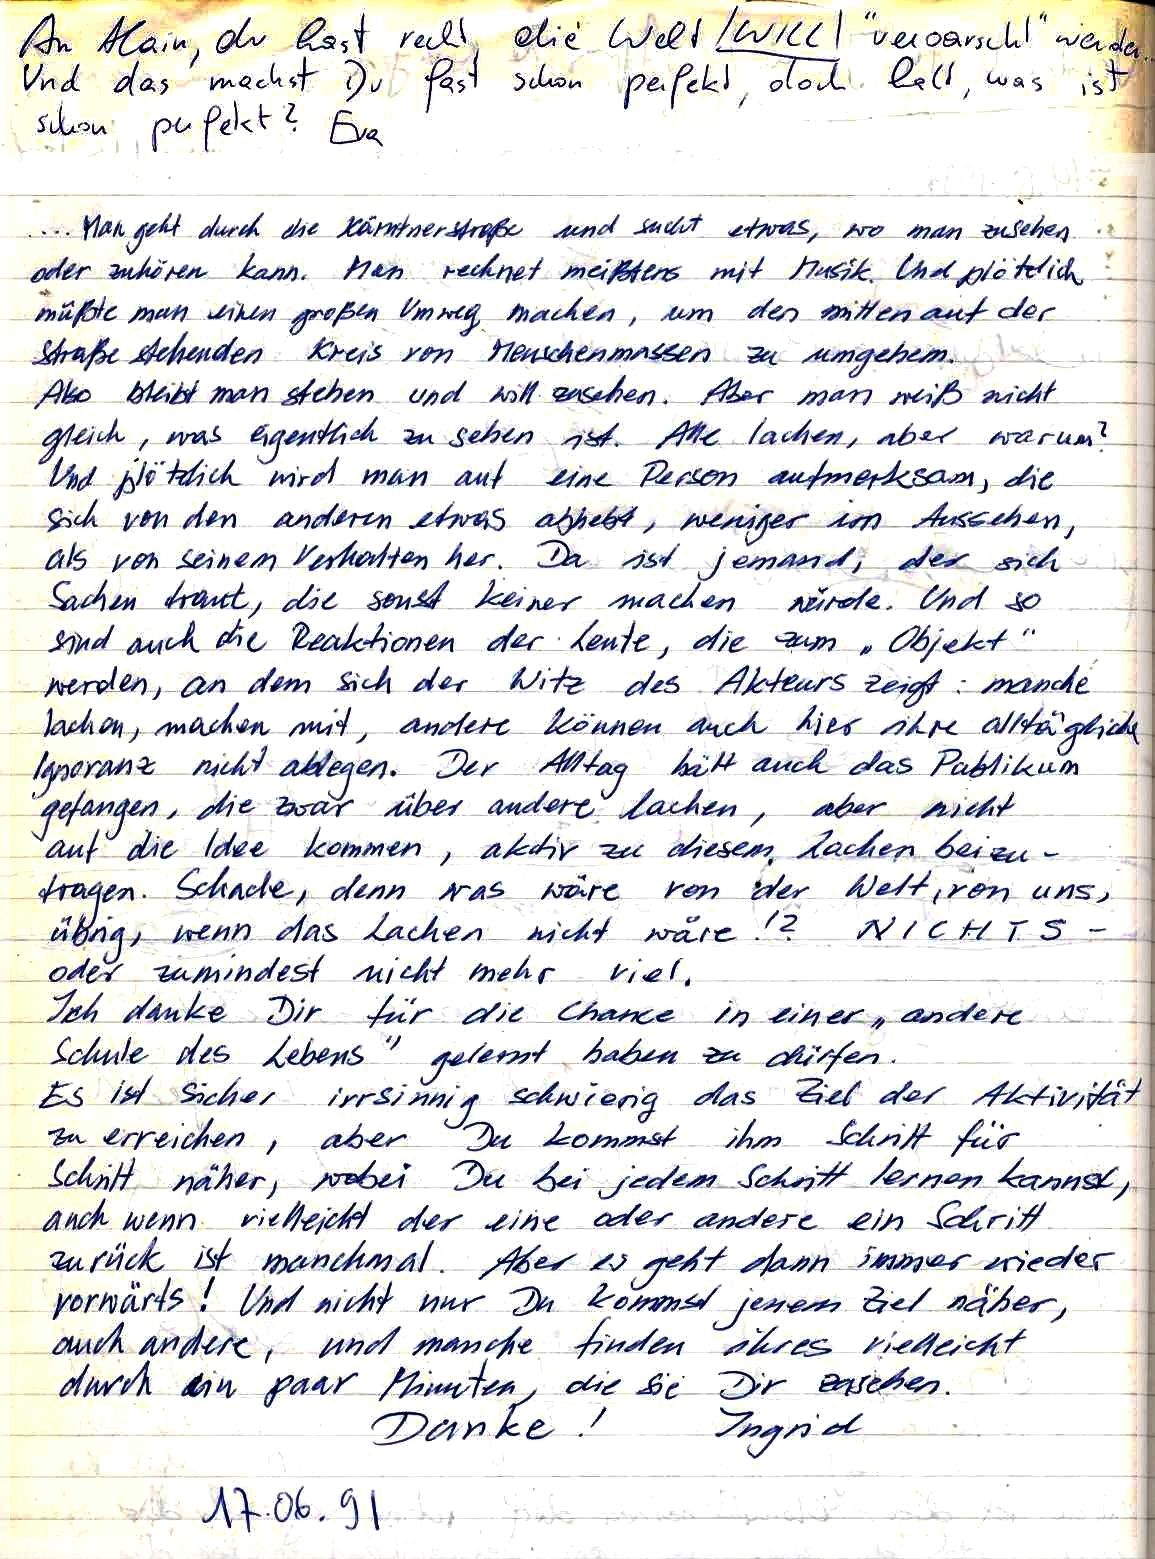 An Alain, du hast recht, die Welt |WILL| "veroarscht" werden...
Und das machst Du fast schon perfekt, doch halt, was ist
schon perfekt? Eva
.... Man geht durch die Kärntnerstraße und sucht etwas, wo man zusehen
oder zuhören kann. Man rechnet meißtens mit Musik. Und plötzlich
müßte man einen großen Umweg machen, um den mitten auf der
Straße stehenden Kreis von Menschenmassen zu umgehem.
Also bleibt man stehen und will zusehen. Aber man weiß nicht
gleich, was eigentlich zu sehen ist. Alle lachen, aber warum?
Und plötzlich wird man auf eine Person aufmerksam, die
sich von den anderen etwas abhebt, weniger im Aussehen,
als von seinem Verhalten her. Da ist jemand, der sich
Sachen traut, die sonst keiner machen würde. Und so
sind auch die Reaktionen der Leute, die zum „Objekt“
werden, an dem sich der Witz des Akteurs zeigt: manche
lachen, machen mit, andere können auch hier ihre alltägliche
Ignoranz nicht ablegen. Der Alltag hält auch das Publikum
gefangen, die zwar über andere lachen, aber nicht
auf die Idee kommen, aktiv zu diesem Lachen beizu-
tragen. Schade, denn was wäre von der Welt, von uns,
übrig, wenn das Lachen nicht wäre!? NICHTS -
oder zumindest nicht mehr viel.
Ich danke Dir für die Chance in einer „andere
Schule des Lebens“ gelernt haben zu dürfen.
Es ist sicher irrsinnig schwierig das Ziel der Aktivität
zu erreichen, aber Du kommst ihm Schritt für
Schritt näher, wobei Du bei jedem Schritt lernen kannst,
auch wenn vielleicht der eine oder andere ein Schritt
zurück ist manchmal. Aber es geht dann immer wieder
vorwärts! Und nicht nur Du kommst jenem Ziel näher,
auch andere, und manche finden ihres vielleicht
durch ein paar Minuten, die sie Dir zusehen.
Danke! Ingrid
17.06.91